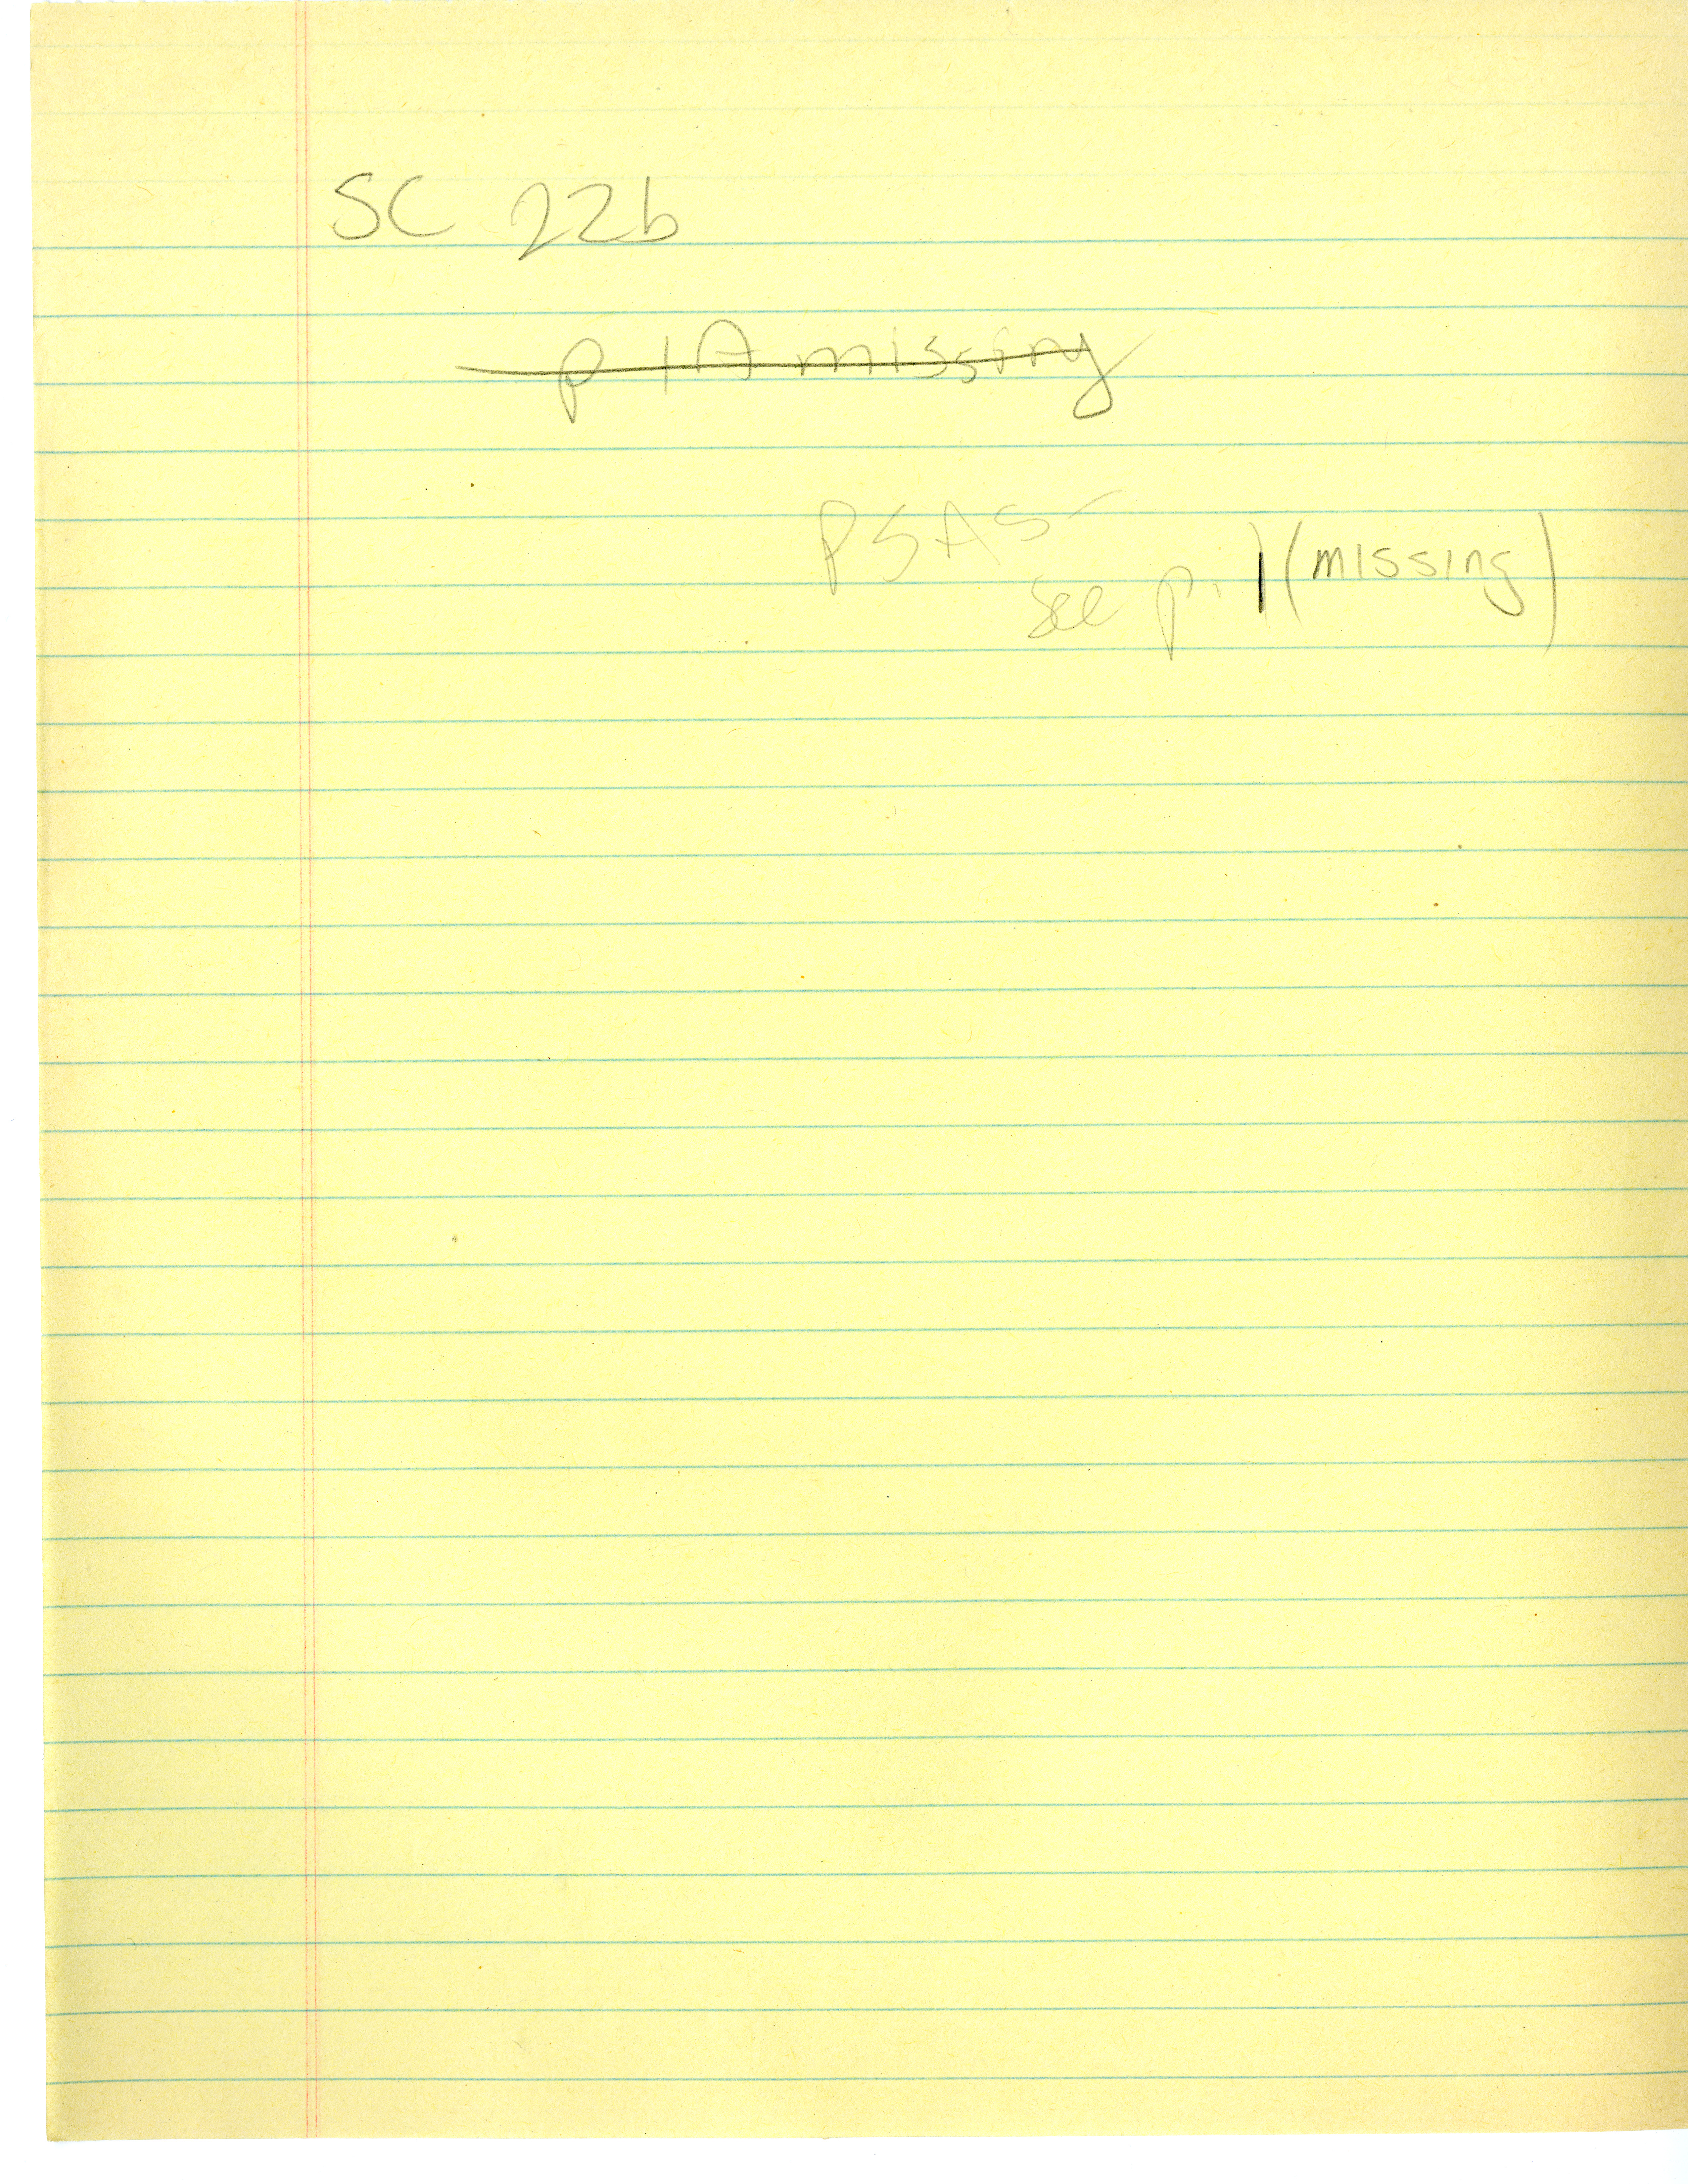 SC 22b
p 1A missing
PSAS-
see p. 1 (missing)